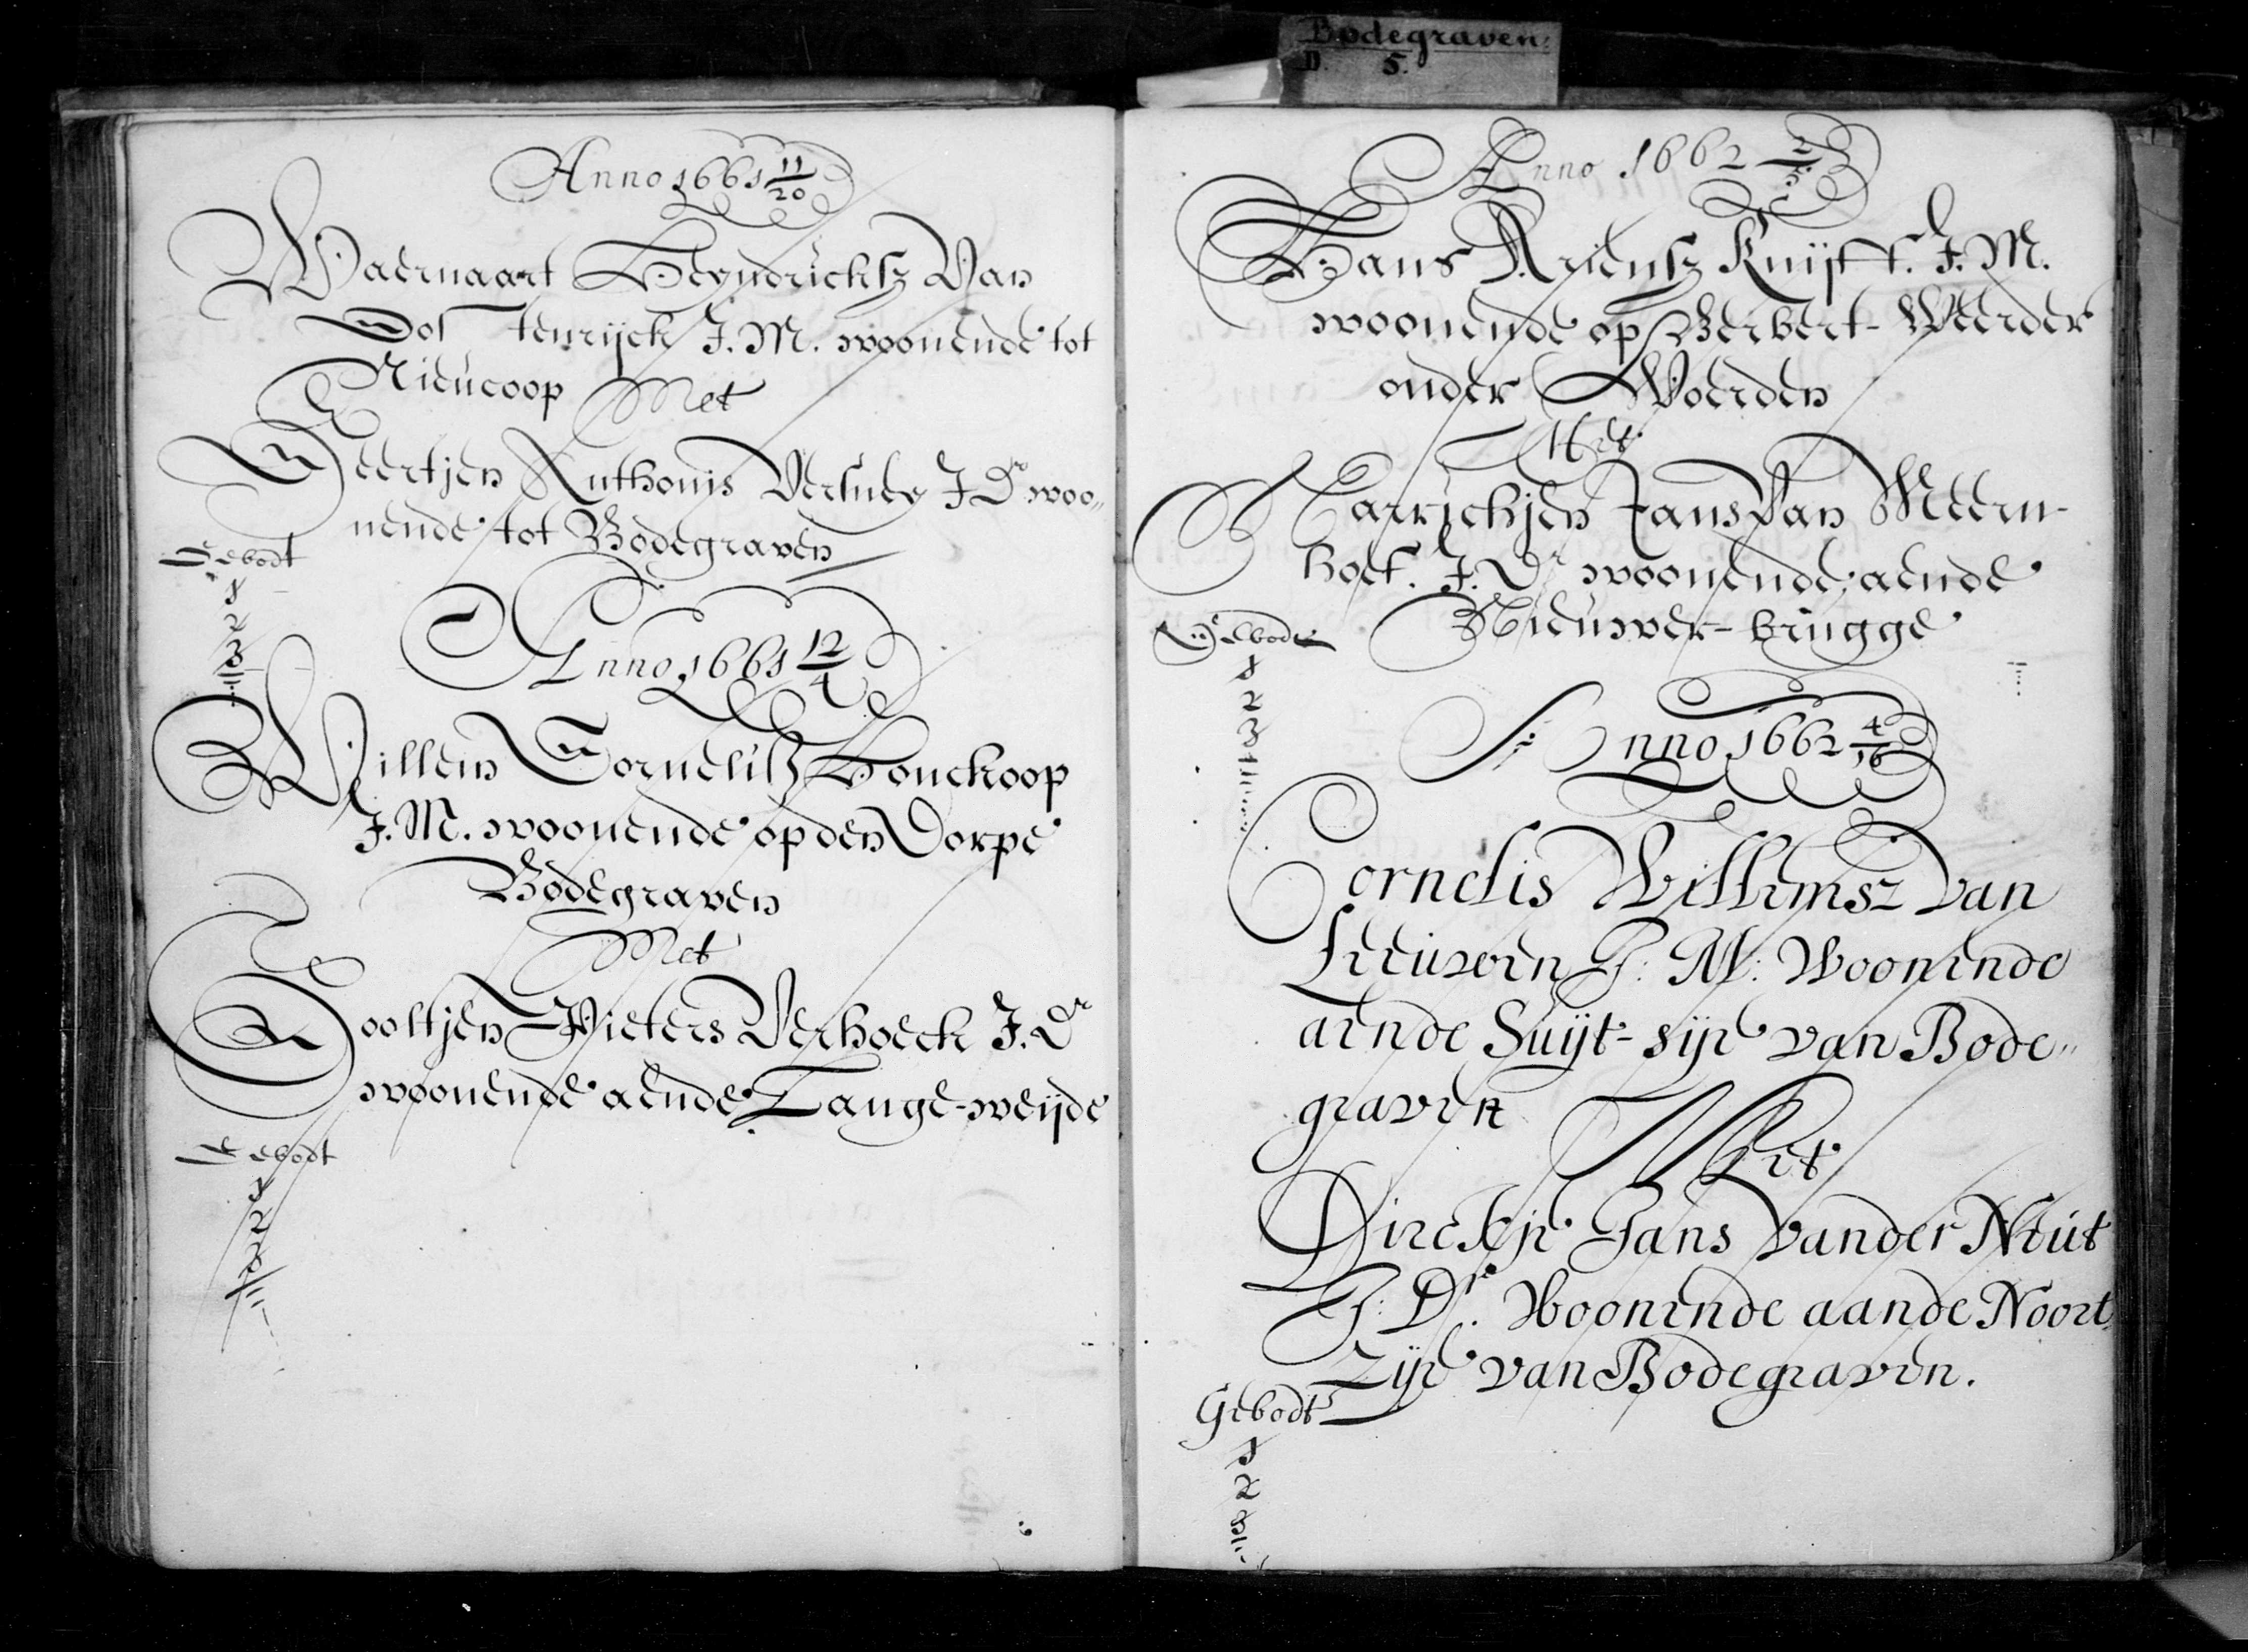 Bodegraven:
D. 5.
Anno 1661 11/20
Waernaart Heyndricksz Van
Oostenrijck J.M. woonende tot
Nieucoop Met
Geertjen Anthonis Versluy J Dr woo„
nende tot Bodegraven
Gebodt
1
2
3
Anno 1661 12/4
Willem Cornelisz Honckoop
J.M. woonende op den Dorpe
Bodegraven
Met
Gooltjen Pieters Verhoeck J. Dr
woonende aende Lange-weijde
Gebodt
1
2
3
Anno 1662 2/5
Hans Ariensz Knijff. J.M.
woonende op Gerbert-Weerder
onder Woerden
Met
Marrichjen Jans Van Meern-
hoef. J. Dr woonende aende
Nieuwer-brugge
Gebodt
1
2
3
Anno 1662 4/16
Cornelis Willemsz van
Leeuwen J: M: Woonende
aende Suijt-sije van Bode„
graven
Met
Dirckje Jans vander Neut
J: Dr. Woonende aande Noort
Zije van Bodegraven.
Gebodt
1
2
3